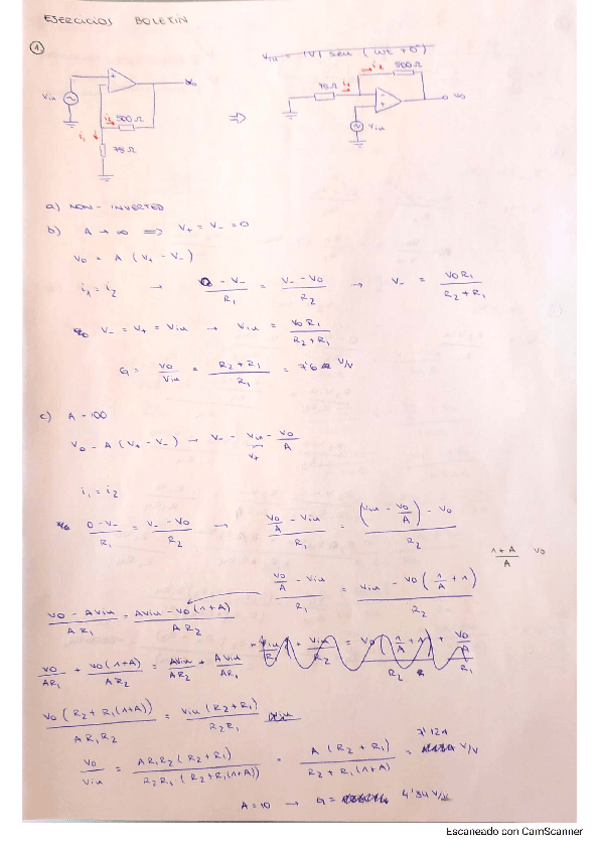 EJERCICIOS BOLETIN
1
Vin = |V| seu (wt + 0°)
Vin
500 Ω
i2
i1
75 Ω
Vo
⇒
75 Ω
i1
i2
500 Ω
Vin
Vo
a) NON - INVERTED
b) A → ∞ ⇒ V+ = V- = 0
Vo = A (V+ - V-)
i1 = i2 → (0 - V-)/R1 = (V- - Vo)/R2 → V- = Vo R1/(R2 + R1)
V- = V+ = Vin → Vin = Vo R1/(R2 + R1)
G = Vo/Vin = (R2 + R1)/R1 = 7'6 V/V
c) A = 100
Vo = A (V+ - V-) → V- = Vin - Vo/A
V+
i1 = i2
(0 - V-)/R1 = (V- - Vo)/R2 → (Vo/A - Vin)/R1 = ((Vin - Vo/A) - Vo)/R2
(1 + A)/A Vo
(Vo/A - Vin)/R1 = (Vin - Vo (1/A + 1))/R2
(Vo - AVin)/(A R1) = (AVin - Vo (1+A))/(A R2)
Vo/(AR1) + Vo(1+A)/(AR2) = AVin/(AR2) + AVin/(AR1)
Vin/R1 + Vin/R2 = Vo (1/A + 1)/R2 + Vo/A/R1
Vo (R2 + R1(1+A))/(A R1 R2) = Vin (R2 + R1)/(R2 R1)
Vo/Vin = A R1 R2 (R2 + R1)/(R2 R1 (R2 + R1(1+A))) = A (R2 + R1)/(R2 + R1(1+A)) = 7'121 V/V
A = 10 → G = 4'34 V/V
Escaneado con CamScanner